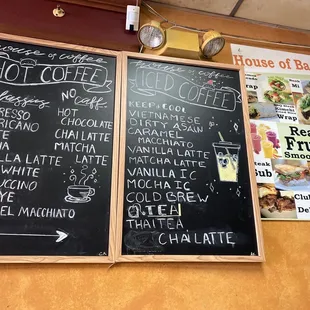 House of Coffee
HOT COFFEE
NO CAFF
HOT
CHOCOLATE
CHAI LATTE
MATCHA
LATTE
RESSO
RICANO
TE
ILLA LATTE
WHITE
UCCINO
YE
MEL MACCHIATO
House of Coffee
ICED COFFEE
KEEP COOL
VIETNAMESE
DIRTY ASIAN
CARAMEL
MACCHIATO
VANILLA LATTE
MATCHA LATTE
VANILLA IC
MOCHA IC
COLD BREW
TEA
THAITEA
CHAI LATTE
House of Ba
Wrap
Rea
Fru
Smoo
Sub
Club
De